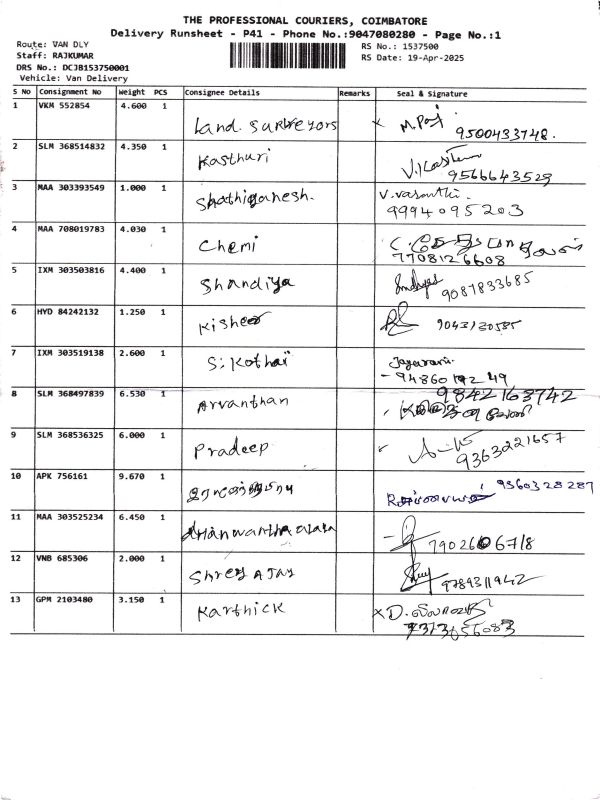 THE PROFESSIONAL COURIERS, COIMBATORE
Delivery Runsheet - P41 - Phone No.:9047080280 - Page No.:1
Route: VAN DLY
RS No.: 1537500
Staff: RAJKUMAR
RS Date: 19-Apr-2025
DRS No.: DCJB153750001
Vehicle: Van Delivery
S No Consignment No Weight PCS Consignee Details Remarks Seal & Signature
1 VKM 552854 4.600 1 Land. Surveyors x M.
9500433748.
2 SLM 368514832 4.350 1 Kasthuri
9566643529
3 MAA 303393549 1.000 1 Shathiganesh. V. Vasanthi.
9994095203
4 MAA 708019783 4.030 1 Chemi
7708126608
5 IXM 303503816 4.400 1 Shandiya
9087833685
6 HYD 84242132 1.250 1 Kishor
7 IXM 303519138 2.600 1 S; Kothai Jayarani.
8 SLM 368497839 6.530 1 Arvanthan 9842163742
9 SLM 368536325 6.000 1 Pradeep
9363221657
10 APK 756161 9.670 1 9360328287
11 MAA 303525234 6.450 1
12 VNB 685306 2.000 1 Shrey AJay
9789311942
13 GPM 2103480 3.150 1 Karthick x D.